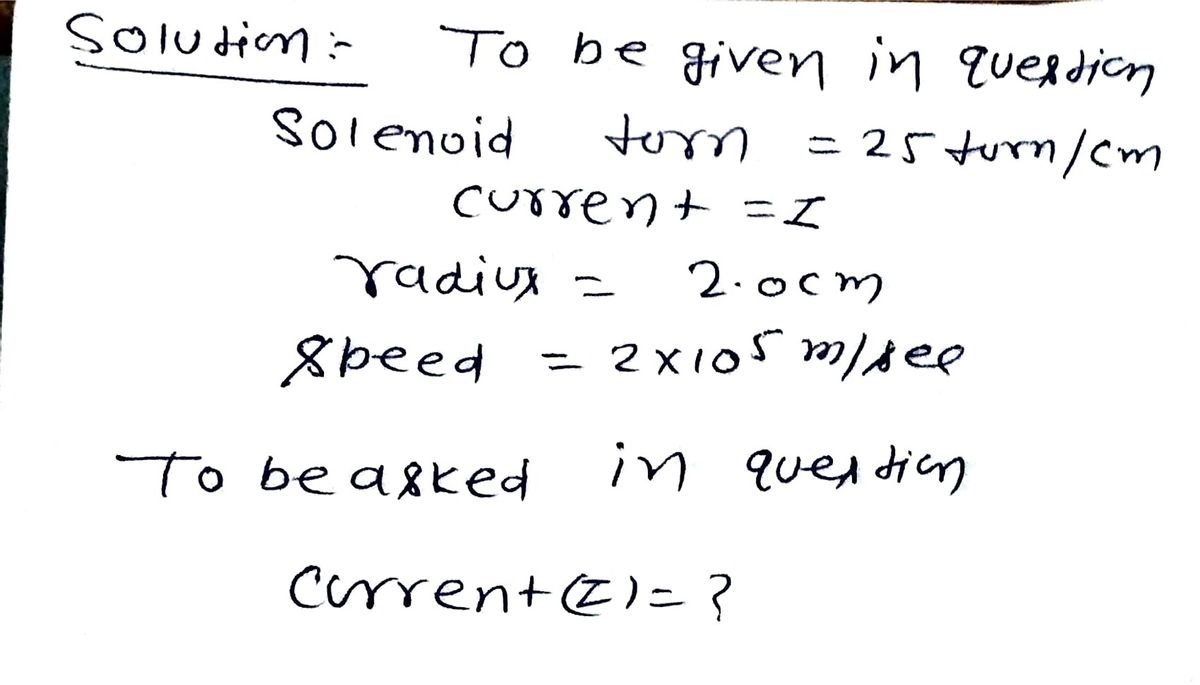 Solution :- To be given in question
Solenoid turn = 25 turn/cm
current = I
radius = 2.0cm
speed = 2×10⁵ m/sec
To be asked in question
Current (I) = ?